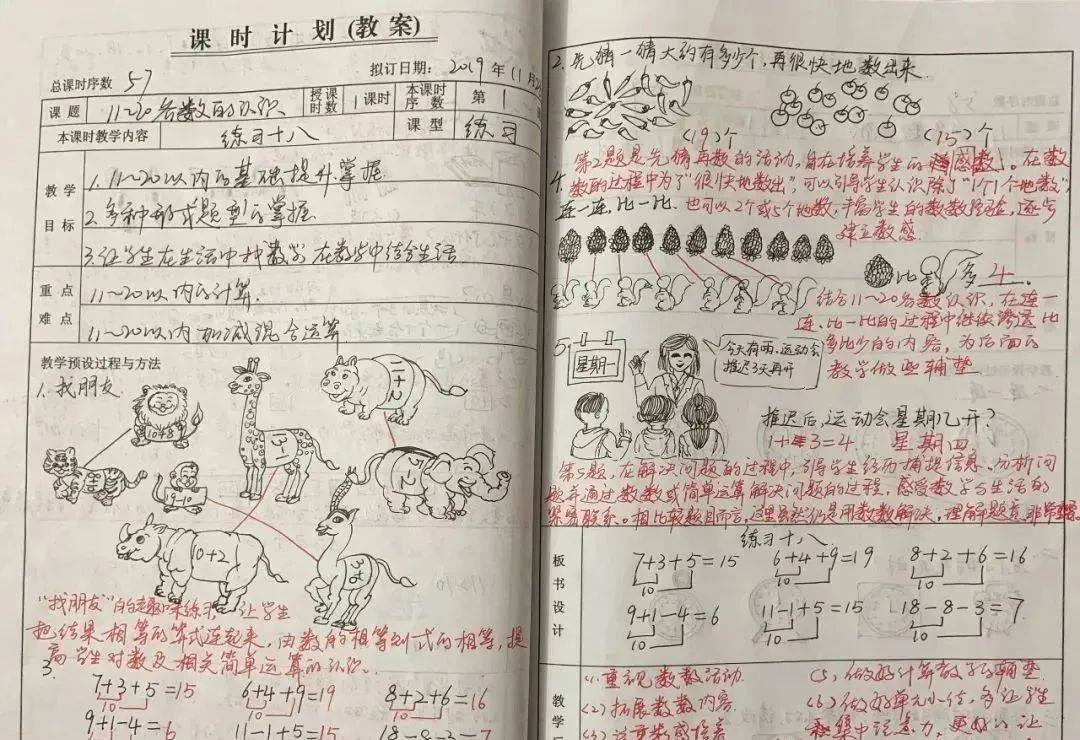 课时计划(教案)
总课时序数 57 拟订日期: 2019年11月
课题 11~20各数的认识 授课时数 1课时 本课时序数 第1
本课时教学内容 练习十八 课型 练习
教学目标
1.11~20以内的基础提升掌握
2.多种形式题型的掌握
3.让学生在生活中找数学 在数学中结合生活
重点 11~20以内的计算.
难点 11~20以内加减混合运算
教学预设过程与方法
1.找朋友
10+8
13-1
11+2
15-2
10+2
3+6
"找朋友"的趣味练习,让学生
把结果相等的算式连起来,由数的相等到式的相等,提
高学生对数及相关简单运算的认识.
3.
7+3+5=15 6+4+9=19 8+2+6=16
10 10 10
9+1-4=6 11-1+5=15 18-8-3=7
2.先猜一猜大约有多少个,再很快地数出来.
(19)个 (15)个
第2题是先猜再数的活动,旨在培养学生的数感。在数
数的过程中为了"很快地数出",可以引导学生认识除了"1个1个地数",
4.
连一连,比一比. 也可以2个或5个地数,丰富学生的数数经验,逐步
建立数感.
比 多4.
结合11~20各数认识,在连一
连、比一比的过程中继续渗透比
多比少的内容,为后面的
教学做些铺垫.
5.
星期一
今天有雨,运动会
推迟3天再开
推迟后,运动会星期几开?
1+3=4 星期四
第5题,在解决问题的过程中,引导学生经历捕捉信息、分析问
题并通过数数或简单运算解决问题的过程,感受数学与生活的
紧密联系。相比较题目而言,这里虽然仍是用数数解决,理解题意非常重要
板书设计
练习十八
7+3+5=15 6+4+9=19 8+2+6=16
10 10 10
9+1-4=6 11-1+5=15 18-8-3=7
10 10 10
教学
(1)重视数数活动. (5)做好计算教学的铺垫
(2)拓展数数内容. (6)做好单元小结,多让学生
(3)注重数感培养 集中注意力,更好的让